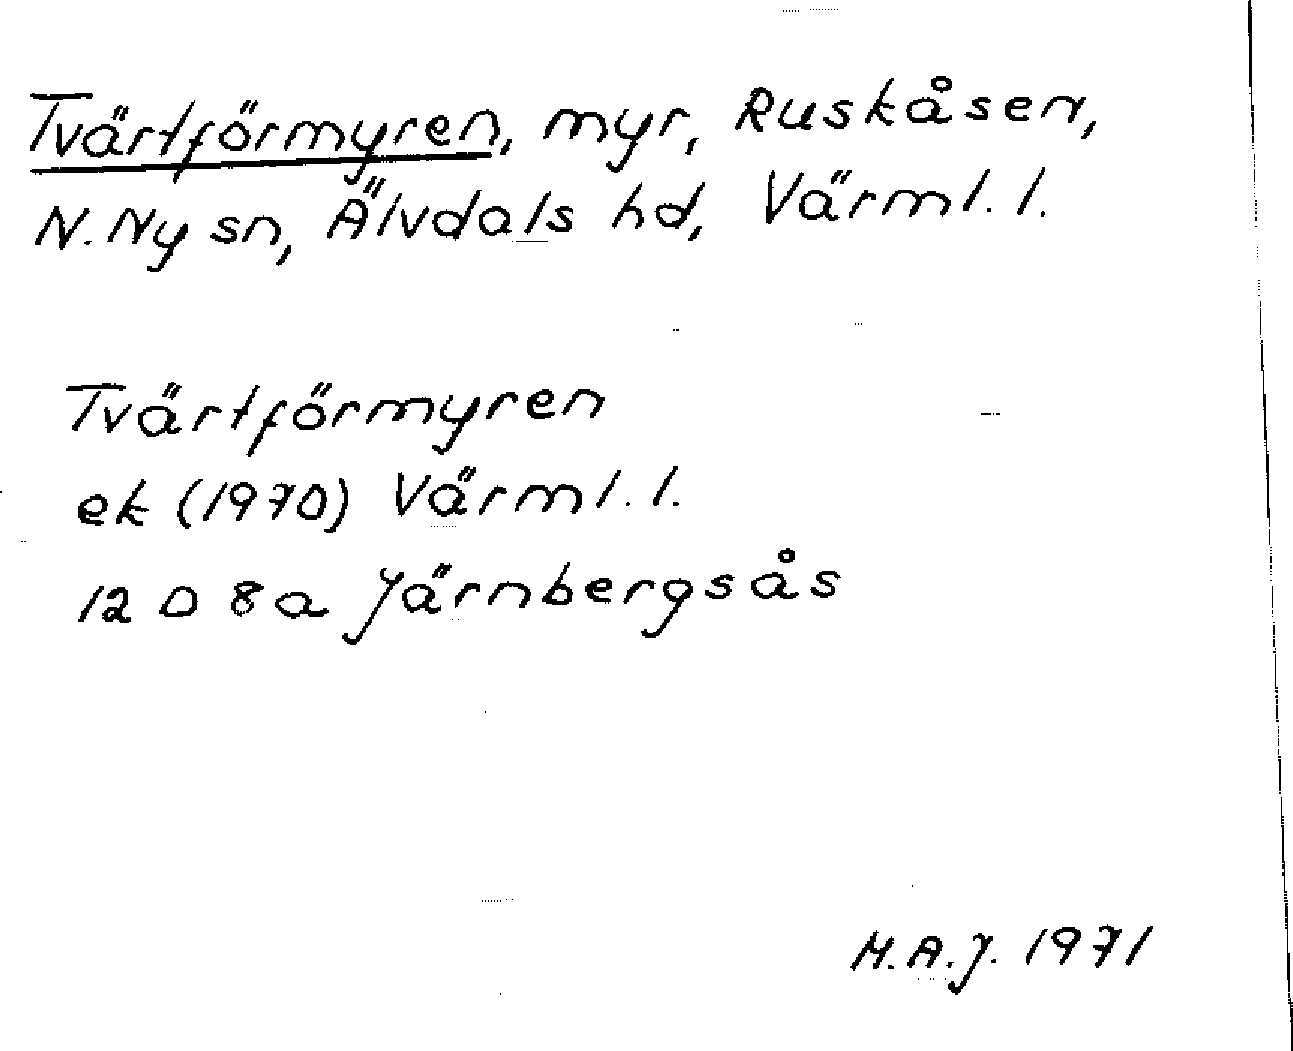 Tvärtförmyren, myr, Ruskåsen,
N. Ny sn, Älvdals hd, Värml. l.
Tvärtförmyren
ek (1970) Värml. l.
12 D 8a Järnbergsås
H.A.J. 1971